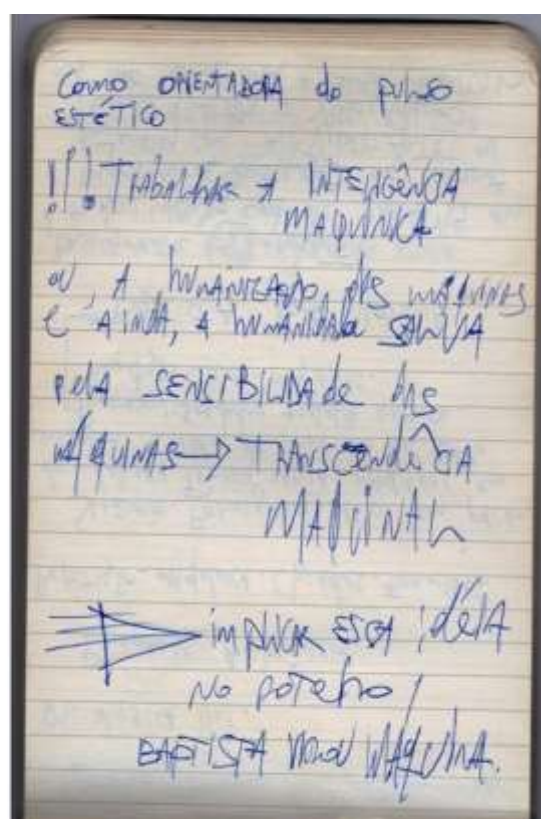 Como ORIENTADORA do pulso
ESTÉTICO
!!! TRABALHAR A INTELIGÊNCIA
MAQUÍNICA
OU, A HUMANIZAÇÃO DAS MÁQUINAS
E AINDA, A HUMANIDADE SALVA
pela SENSIBILIDADE DAS
MÁQUINAS → TRANSCENDÊNCIA
MAQUINAL
implicar ESSA idéIA
NO
BAPTISTA VIROU MÁQUINA.